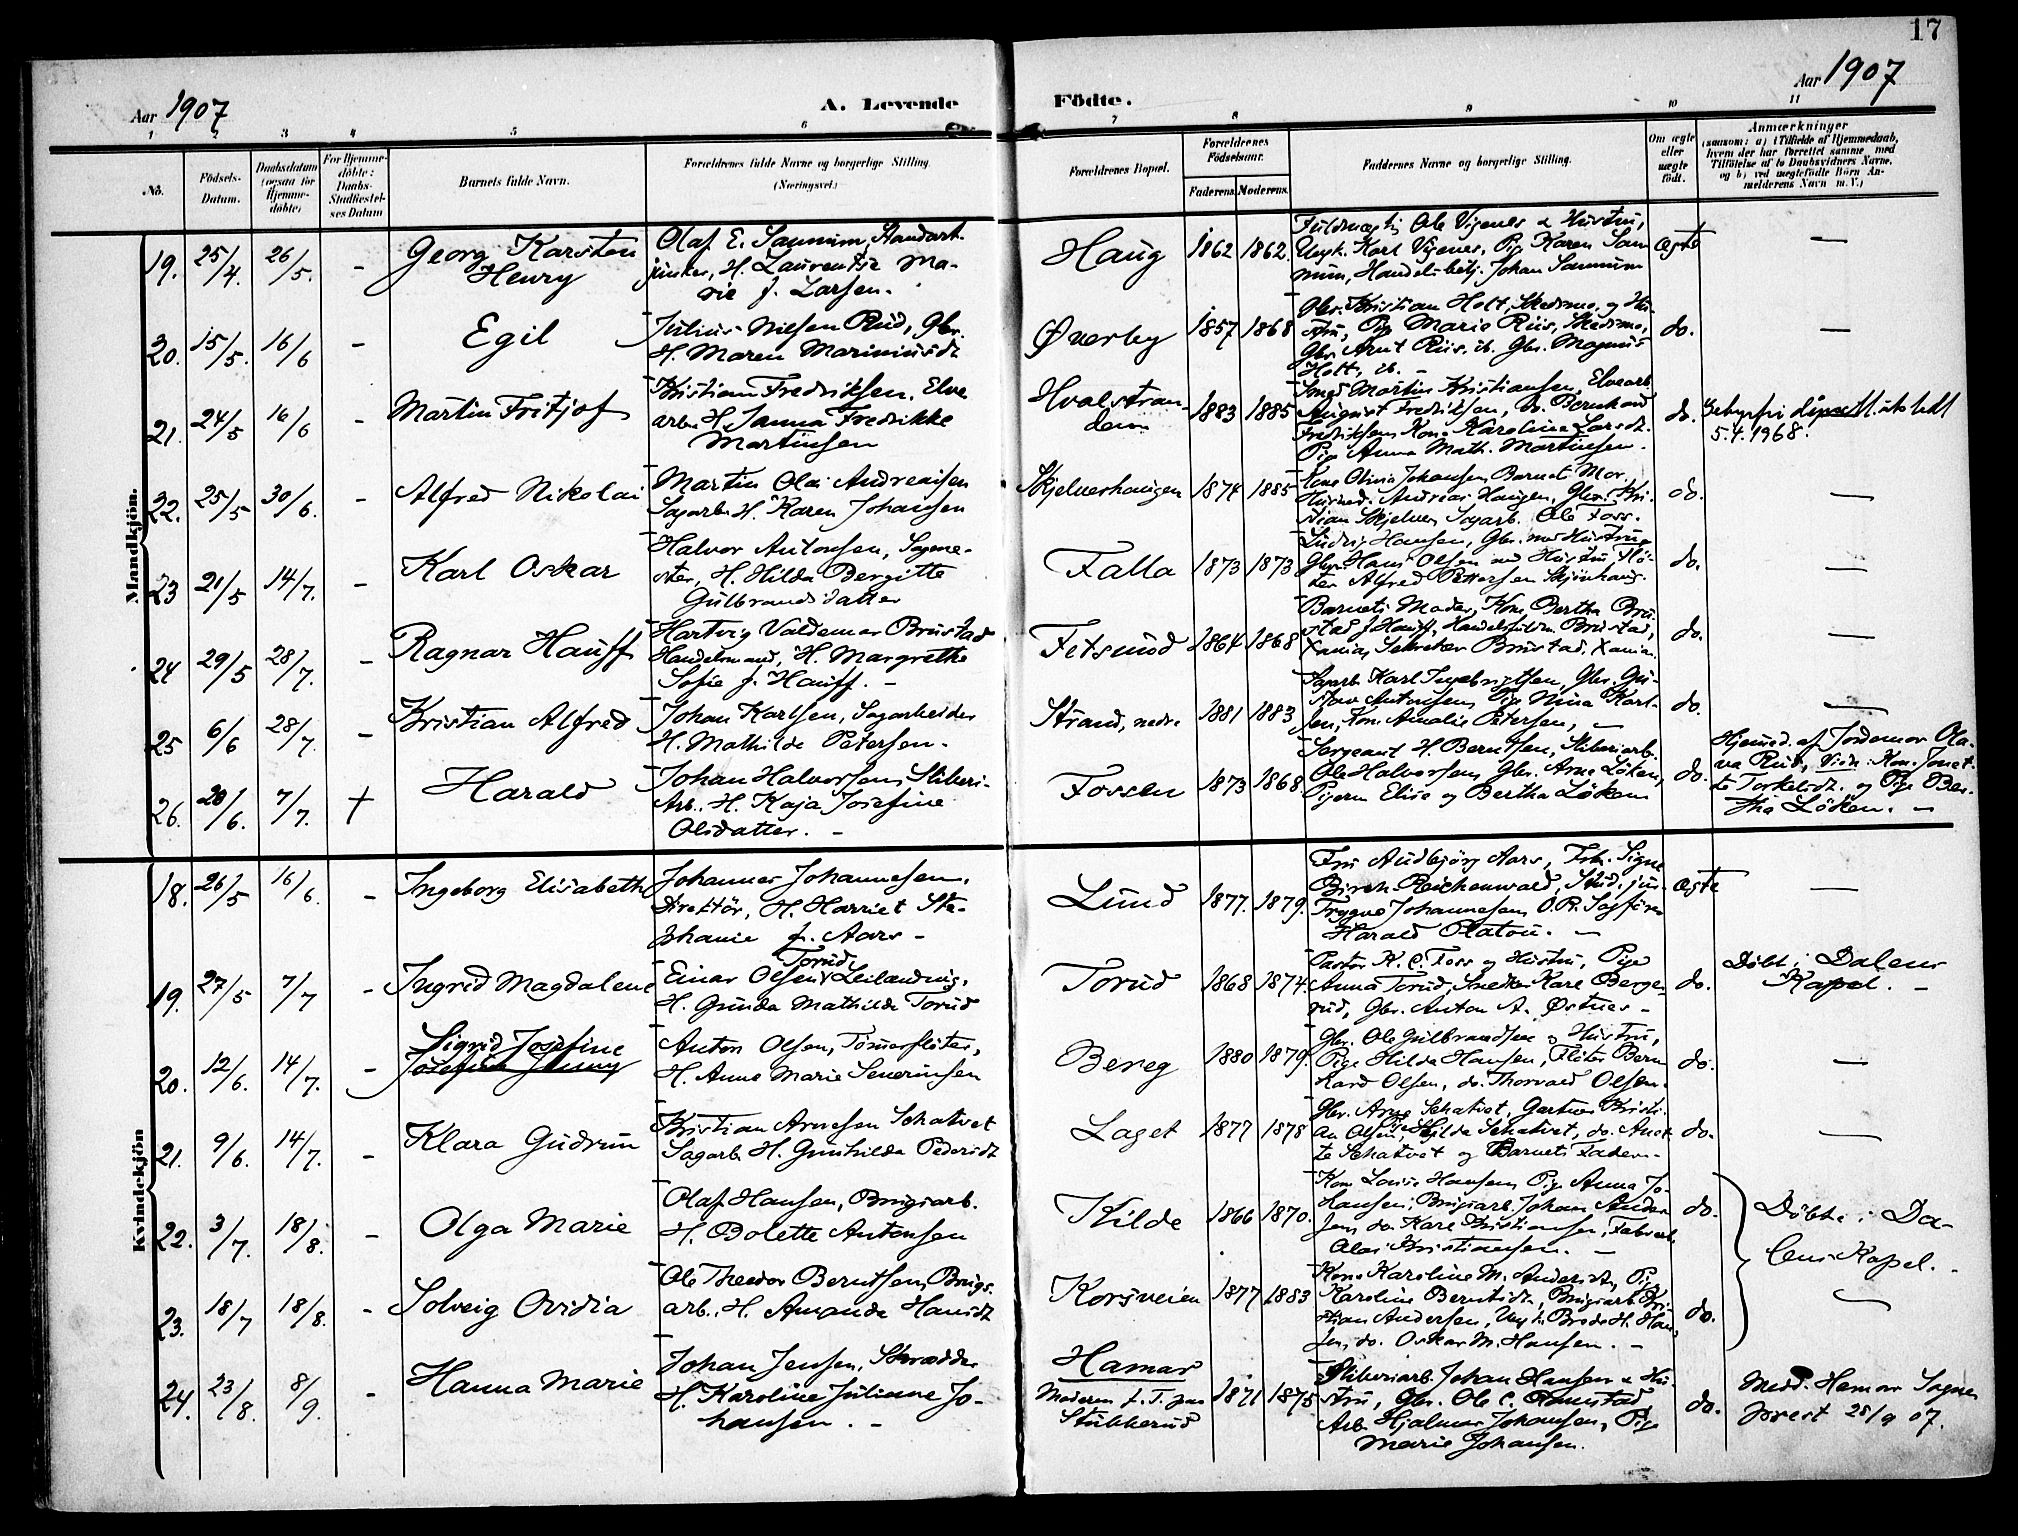 17
Aar 1907
A. Levende
Födte.
Aar 1907
1 2 3 4 5 6 7 8 9 10 11
No.
Födsels-
Datum.
Daabsdatum
(ogsaa for
Hjemme-
döbte)
For Hjemme-
döbte:
Daabs-
Stadfæstel-
ses Datum
Barnets fulde Navn.
Forældrenes fulde Navne og borgerlige Stilling.
(Næringsvei.)
Forældrenes Bopæl.
Forældrenes
Födselsaar.
Faderens.
Moderens.
Faddernes Navne og borgerlige Stilling.
Om ægte
eller
uægte
födt.
Anmærkninger
(saasom: a) i Tilfælde af Hjemmedaab,
hvem der har forrettet samme med
Tilföielse af to Daabsvidners Navne,
og b) ved uægtefödte Börn An-
melderens Navn m. V.)
Mandkjön.
19. 25/4. 26/5. -
Georg Karsten
Henry
Olaf E. Sannum, Standart-
junker, H. Laurentse Ma-
rie f. Larsen.
Haug 1862 1862
Ole Vigenes & Hustru,
Karl Vigenes, Pige Karen San
num, Johan Sannum
ægte
—
20. 15/5. 16/6 -
Egil
Julius Nilsen Rud, Gbr.
H. Maren Mariniusdt
Øverby 1857 1868
Gbr. Kristian Holt, Skedsmo, og Hu-
stru, Pige Marie Riis, Skedsmo,
Gbr. Arnt Riis, ib. Gbr. Magnus
Holt, ib. -
do.
—
21. 24/5 16/6 -
Martin Fritjof
Kristian Fredriksen, Elve
arb. H. Janna Fredrikke
Martinsen
Hvalstran-
den 1883 1885
Smed Martin Kristiansen, Elvearb.
August Fredriksen, do. Bernhard
Fredriksen Kone Karoline Larsdt.
Pige Anna Math. Martinsen.
do.
5.4.1968.
22. 25/5 30/6. -
Alfred Nikolai
Martin Olai Andreassen
Sagarb. H. Karen Johansen
Skjelverhaugen 1874 1885
Olivia Johansen, Barnets Mor,
Andreas Haugen, Gbr. Kri-
stian Skjelver, Sagarb. Ole Foss.
do.
—
23 21/5 14/7. -
Karl Oskar
Halvor Antonsen, Sagme-
ster, H. Hilda Bergitte
Gulbrandsdatter
Falla 1873 1873
Ludvig Hansen, Gbr. med Hustru
Gbr. Hans Olsen med Hustru, Flö-
ter Alfred Pettersen
do.
—
24 29/5 28/7. -
Ragnar Hauff
Hartvig Valdemar Brustad
Handelsmand, H. Margrethe
Sofie f. Hauff. -
Fetsund 1864 1868
Barnets Moder, Kone Bertha Bru-
stad f. Hauff, Brustad,
Xania, Sekretær Brustad, Xania.
do.
—
25 6/6 28/7. -
Kristian Alfred
Johan Karlsen, Sagarbeider
H. Mathilde Petersen.
Strand, nedre 1881 1883
Sagarb. Karl Ingebrigtsen, Gbr. Gu-
stav Antonsen, Pige Nina Karl-
sen, Kone Amalie Petersen, -
do.
—
26. 20/6. 7/7. +
Harald
Johan Halvorsen, Stiberi-
Arb., H. Kaja Josefine
Olsdatter. -
Fossen 1873 1868
Sergeant H. Berntsen, Stiberiarb.
Ole Halvorsen, Gbr. Arne Löken,
Pigerne Elise og Bertha Löken
do.
Hjemmed. af Jordemor Ola-
va Rud, Vidn. Kone Jonet-
te Torkelsdt. og Pige Ber-
tha Löken. -
Kvindekjön
18. 26/5 16/6. -
Ingeborg Elisabeth
Johannes Johannesen,
Direktör, H. Harriet Ste-
phanie f. Aars -
Lund 1877. 1879.
Fru Audbjörg Aars, Frk. Signe
Birch-Reichenwald, Stud. jur.
Trygve Johannesen, O.R. Sagförer
Harald Platou. -
ægte
—
19. 27/5 7/7 -
Ingrid Magdalene
Torud,
Einar Olsen Leilænding,
H. Gunda Mathilde Torud
Torud 1868 1874.
Pastor K. C. Foss og Hustru, Pige
Anna Torud, Snedker Kare Berge-
rud, Gbr. Anton A. Østnes -
do.
Döbt i Dalens
Kapel. -
20. 12/6. 14/7. -
Sigrid Josefine
Josefine Jenny
Anton Olsen, Tömmerflöter,
H. Anne Marie Severinsen
Bereg 1880 1879.
Gbr. Ole Gulbrandsen og Hustru,
Pige Hilda Hansen, Flöter Bern
hard Olsen, do. Thorvald Olsen.
do.
—
21. 9/6. 14/7. -
Klara Gudrun
Kristian Arnesen Schatvet
Sagarb. H. Gunhilda Pedersdt
Laget 1877 1878
Gbr. Arne Schatvet, Gartner Kristi-
an Olsen, Pige Hilda Schatvet, do. Anet-
te Schatvet og Barnets Fader. -
do.
—
22. 3/7. 18/8. -
Olga Marie
Olaf Hansen, Brugsarb.
H. Bolette Antonsen
Kilde 1866 1870.
Kone Louise Hansen, Pige Anna Jo-
hansen, Brugsarb. Johan Ander
sen, do. Karl Kristiansen, Fabrarb.
Olai Kristiansen. -
do.
Döbte i Da-
lens Kapel. -
23. 18/7 18/8. -
Solveig Ovidia
Ole Theodor Berntsen, Brugs-
arb., H. Amanda Hansdt
Korsveien 1877 1883
Kone Karoline M. Andersdt, Pige
Karoline Berntsdt, Brugsarb. Kri-
stian Andersen, H. Han-
sen, do. Oskar M. Hansen. -
do.
—
24. 23/8. 8/9. -
Hanna Marie
Johan Jensen, Skrædder
H. Karoline Juliane Jo-
hansen. -
Hamar
Moderen f. T. paa
Stubberud
1871 1875
Stiberiarb. Johan Hansen & Hu-
stru, Gbr. Ole C. Ramstad,
Arb. Hjalmar Johansen, Pige
Marie Johansen.
do.
Medd. Hamar Sogne
prest 28/9 07.